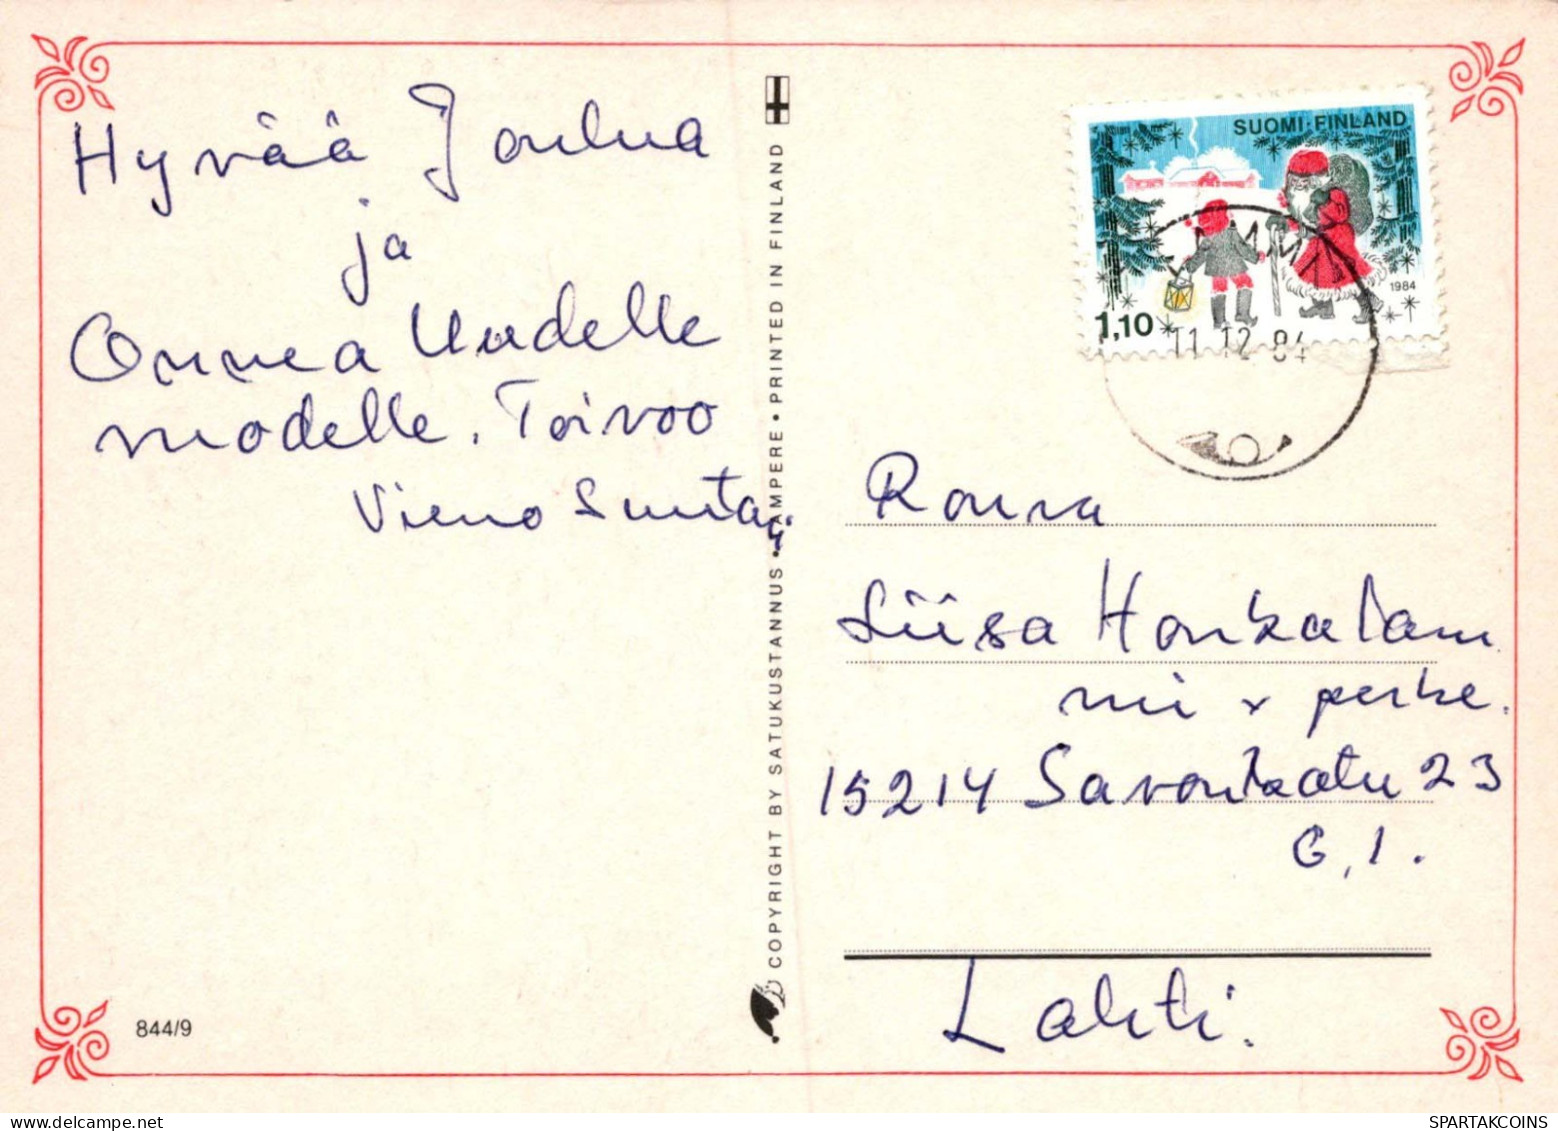 Hyvää Joulua
ja
Onnea Uudelle
modelle. Toivoo
Vieno Suntaij
844/9
COPYRIGHT BY SATUKUSTANNUS • TAMPERE • PRINTED IN FINLAND
SUOMI·FINLAND
1984
1,10
11.12.84
Rouva
Liisa Honkalam
mi x perhe.
15214 Savonkatu 23
G, 1.
Lahti.
SPARTAKCOINS